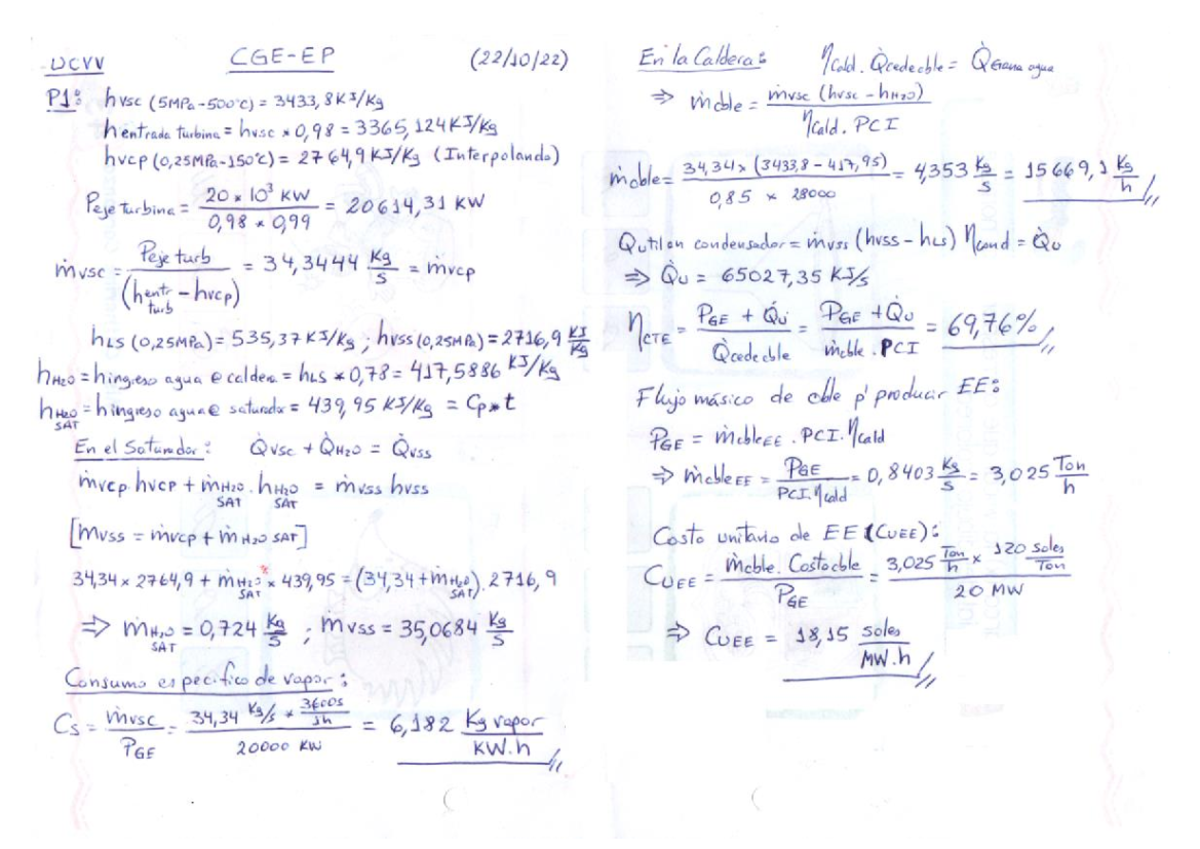 UCVV CGE-EP (22/10/22)
P1: hvsc (5MPa-500°C) = 3433,8 KJ/Kg
hentrada turbina = hvsc * 0,98 = 3365,124 KJ/Kg
hvcp (0,25MPa-150°C) = 2764,9 KJ/Kg (Interpolando)
Peje turbina = 20 x 10³ KW / 0,98 * 0,99 = 20614,31 KW
ṁvsc = Peje turb / (hentr turb - hvcp) = 34,3444 Kg/s = ṁvcp
hLS (0,25MPa) = 535,37 KJ/Kg ; hvss (0,25MPa) = 2716,9 KJ/Kg
hH2O = hingreso agua @ caldera = hLS * 0,78 = 417,5886 KJ/Kg
hH2O SAT = hingreso agua @ saturador = 439,95 KJ/Kg = Cp*t
En el Saturador: Q̇vsc + Q̇H2O = Q̇vss
ṁvcp.hvcp + ṁH2O SAT . hH2O SAT = ṁvss hvss
[ṁvss = ṁvcp + ṁH2O SAT]
34,34 x 2764,9 + ṁH2O SAT x 439,95 = (34,34 + ṁH2O SAT). 2716,9
⇒ ṁH2O SAT = 0,724 Kg/s ; ṁvss = 35,0684 Kg/s
Consumo específico de vapor:
Cs = ṁvsc / PGE = 34,34 Kg/s * 3600s/1h / 20000 KW = 6,182 Kg vapor / KW.h
En la Caldera: ηCald. Q̇cede cble = Q̇Gana agua
⇒ ṁcble = ṁvsc (hvsc - hH2O) / ηCald. PCI
ṁcble = 34,34 x (3433,8 - 417,95) / 0,85 x 28000 = 4,353 Kg/s = 15669,1 Kg/h
Qutil en condensador = ṁvss (hvss - hLS) ηCond = Q̇u
⇒ Q̇u = 65027,35 KJ/s
ηCTE = PGE + Q̇u / Q̇cede cble = PGE + Q̇u / ṁcble . PCI = 69,76%
Flujo másico de cble p' producir EE:
PGE = ṁcbleEE . PCI. ηCald
⇒ ṁcbleEE = PGE / PCI.ηCald = 0,8403 Kg/s = 3,025 Ton/h
Costo unitario de EE (CUEE):
CUEE = ṁcble. Costo cble / PGE = 3,025 Ton/h x 120 Soles/Ton / 20 MW
⇒ CUEE = 18,15 soles / MW.h